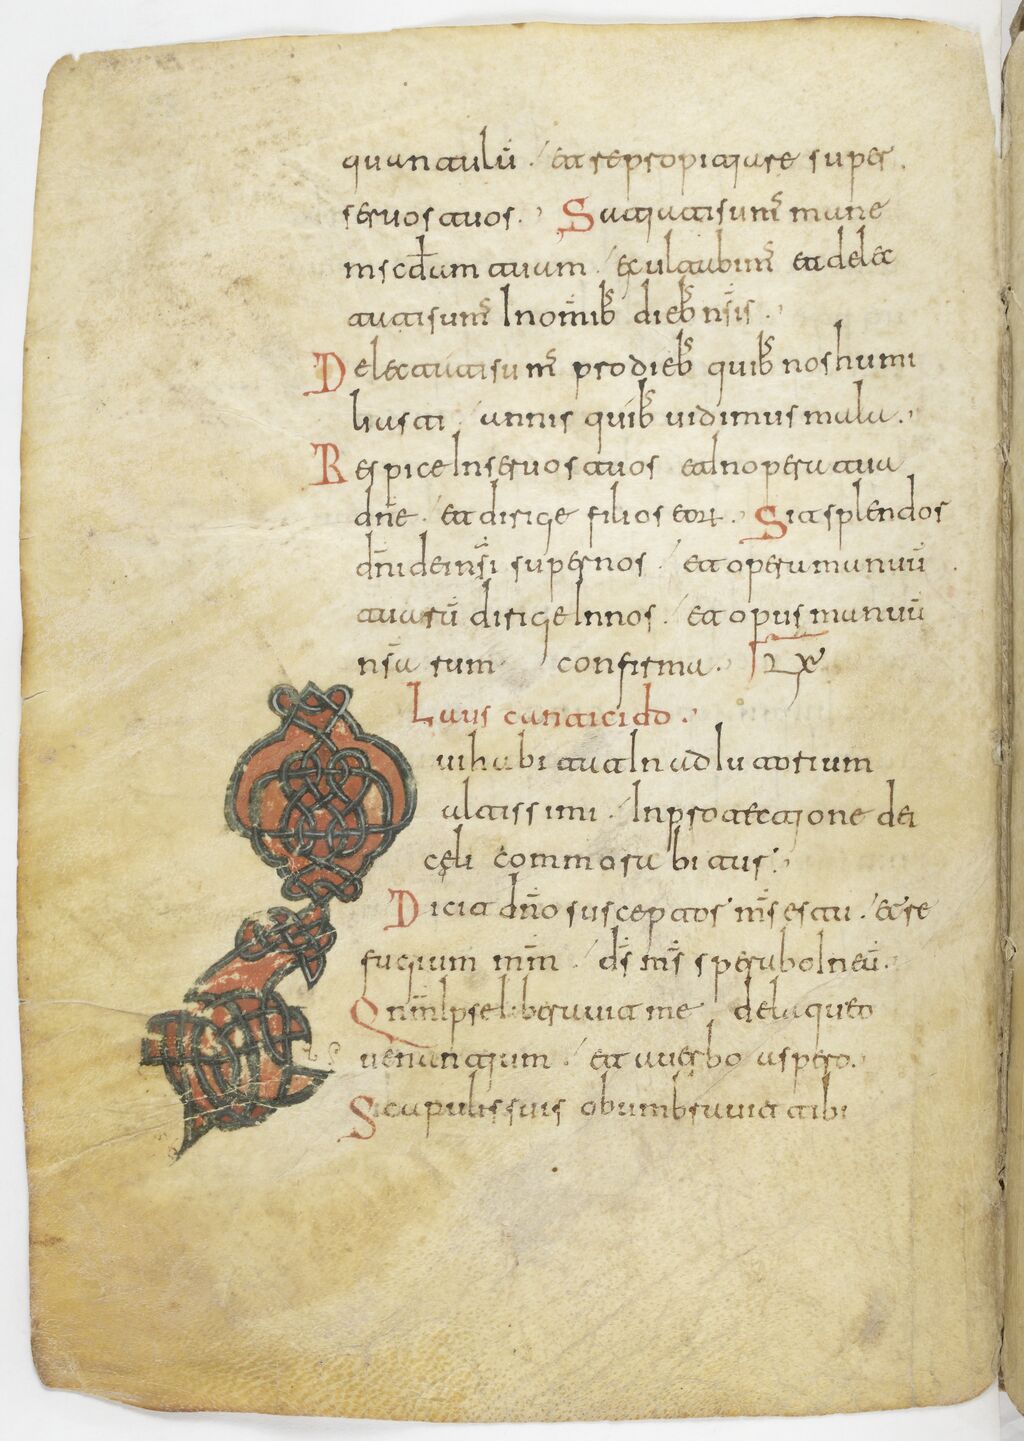 quantulū · et repropitiare super
servos tuos · Satiati sumꝰ mane
mscđam tuam · exultabimꝰ et delec
tati sumꝰ In omīibꝰ diebꝰ nr̄is ·
Delectati sumꝰ pro diebꝰ quibꝰ nos humi
liasti · annis quibꝰ vidimus mala ·
Respice In servos tuos et In opera tua
dn̄e · et dirige filios eoꝝ · Sit splendor
dn̄i dei nr̄i super nos · et opera manuū
tuarū dirige In nos · et opus manuū
nr̄arum confirma ·
Laus cantici dd ·
Qui habitat In adiutorium
altissimi · In protectione dei
cęli commorabitur ·
Dicit dn̄o susceptor ms̄ es tu · et re
fugium mm̄ · ds̄ ms̄ sperabo In eū ·
Qnm̄ Ipse liberavit me de laqueo
venantium · et a verbo aspero ·
Scapulis suis obumbravit tibi